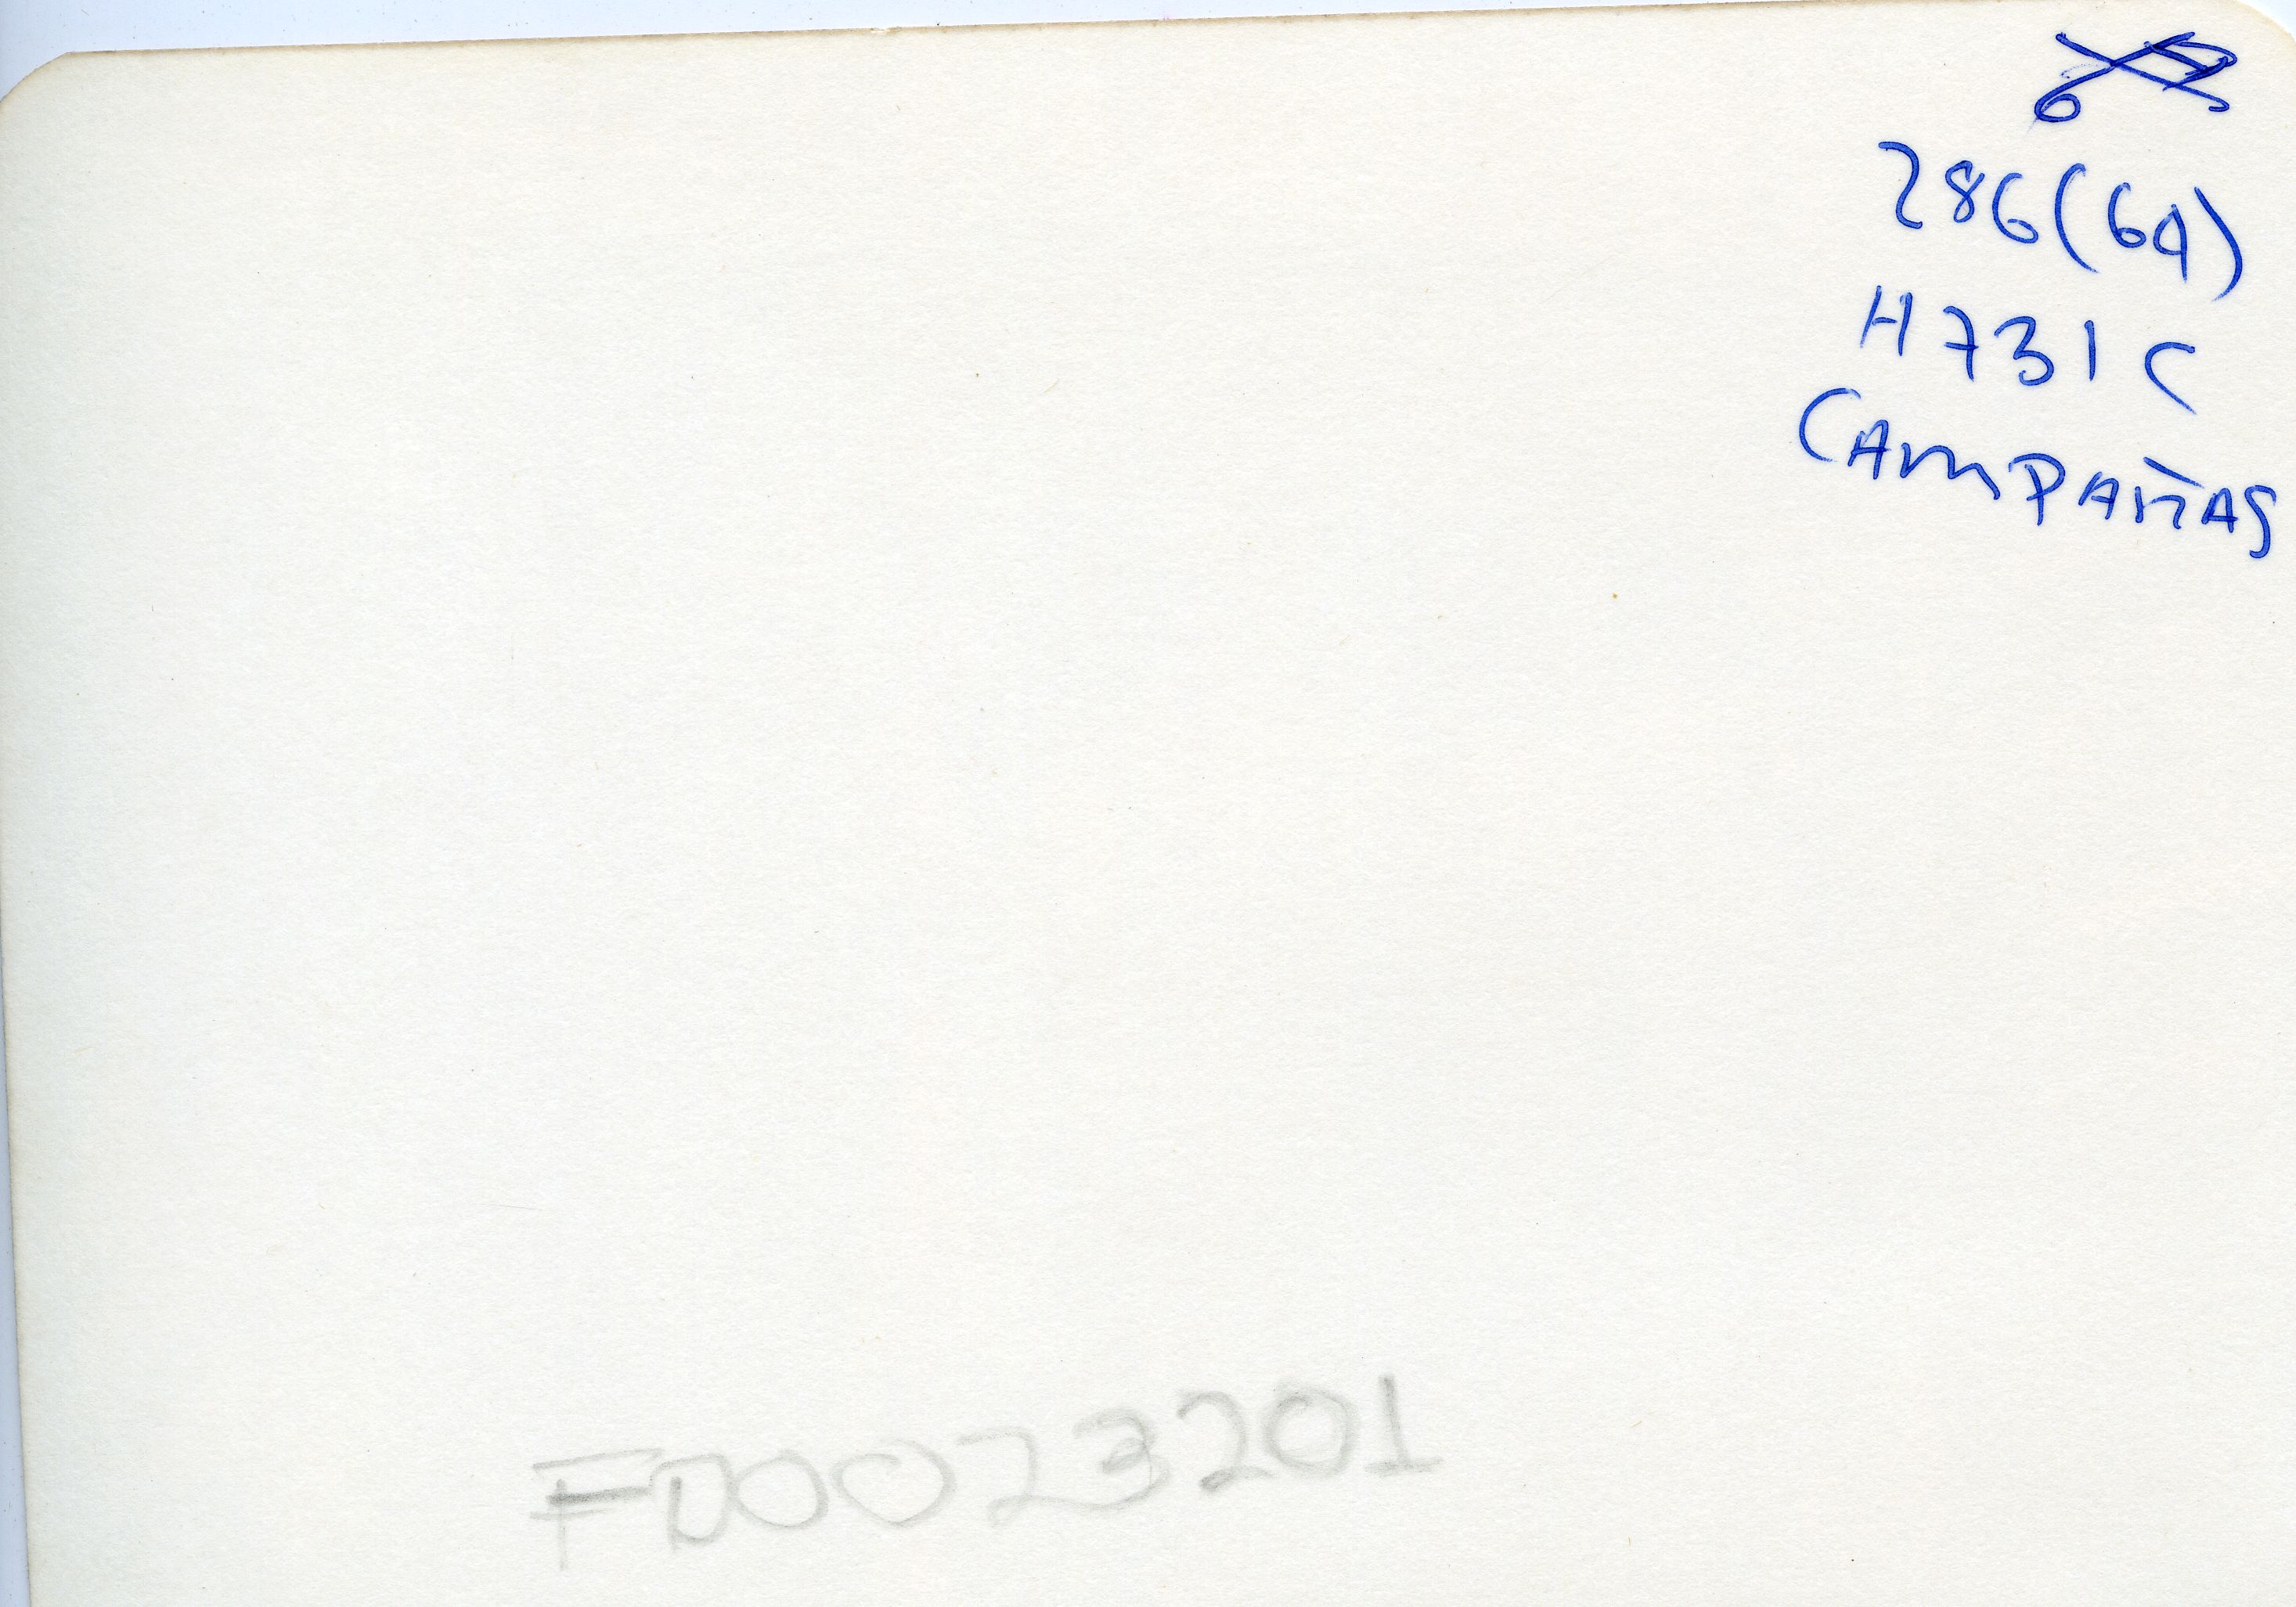 286(64)
H731C
CAMPAÑAS
FD0023201